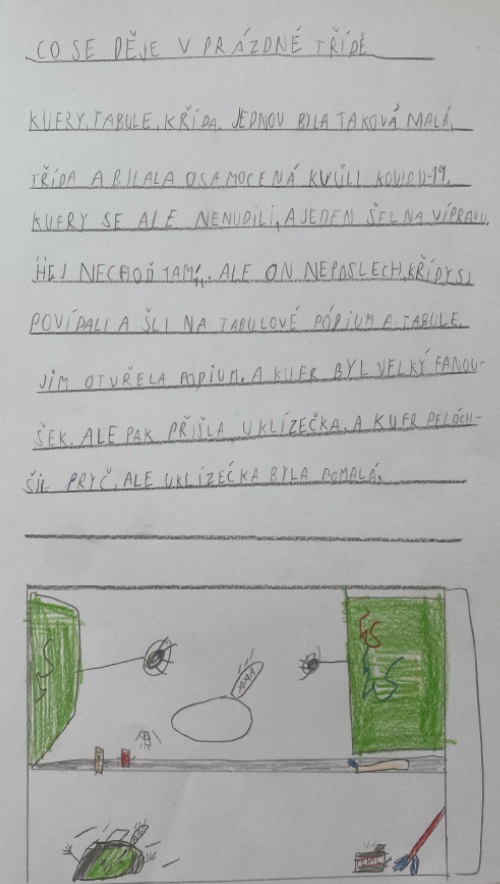 CO SE DĚJE V PRÁZDNÉ TŘÍDĚ
KUFRY, TABULE, KŘÍDA. JEDNOU BILA TAKOVÁ MALÁ
TŘÍDA A BILALA OSAMOCENÁ KVŮLI KOVIDU-19.
KUFRY SE ALE NENUDILI, A JEDEN ŠEL NA VÍPRAVU.
HEJ NECHOĎ TAM!. ALE ON NEPOSLECH, KŘÍDY SI
POVÍDALI A ŠLI NA TABULOVÉ PÓDIUM A TABULE
JIM OTVŘELA PODIUM. A KUFR BYL VELKÝ FANOU-
ŠEK. ALE PAK PŘIŠLA UKLÍZEČKA. A KUFR PELÁCH-
ŠIL PRYČ, ALE UKLÍZEČKA BYLA POMALÁ.